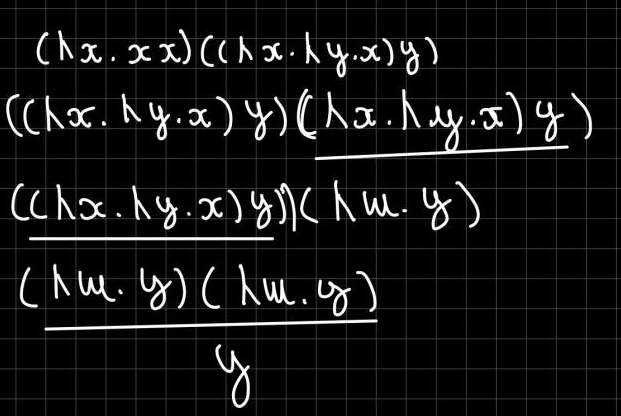 (λx.xx)((λx.λy.x)y)
((λx.λy.x)y)((λx.λy.x)y)
((λx.λy.x)y))(λw.y)
(λw.y)(λw.y)
y